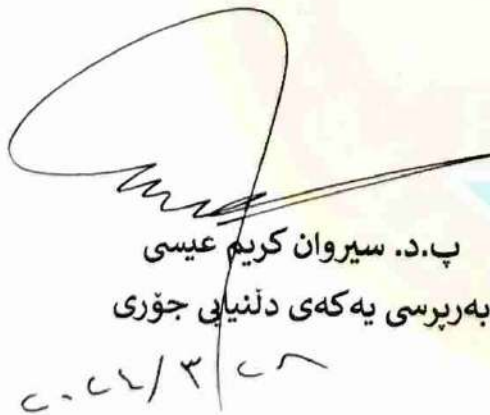 پ.د. سیروان کریم عیسی
بەرپرسی یەکەی دڵنیایی جۆری
٢٠٢٤/٣/٢٨